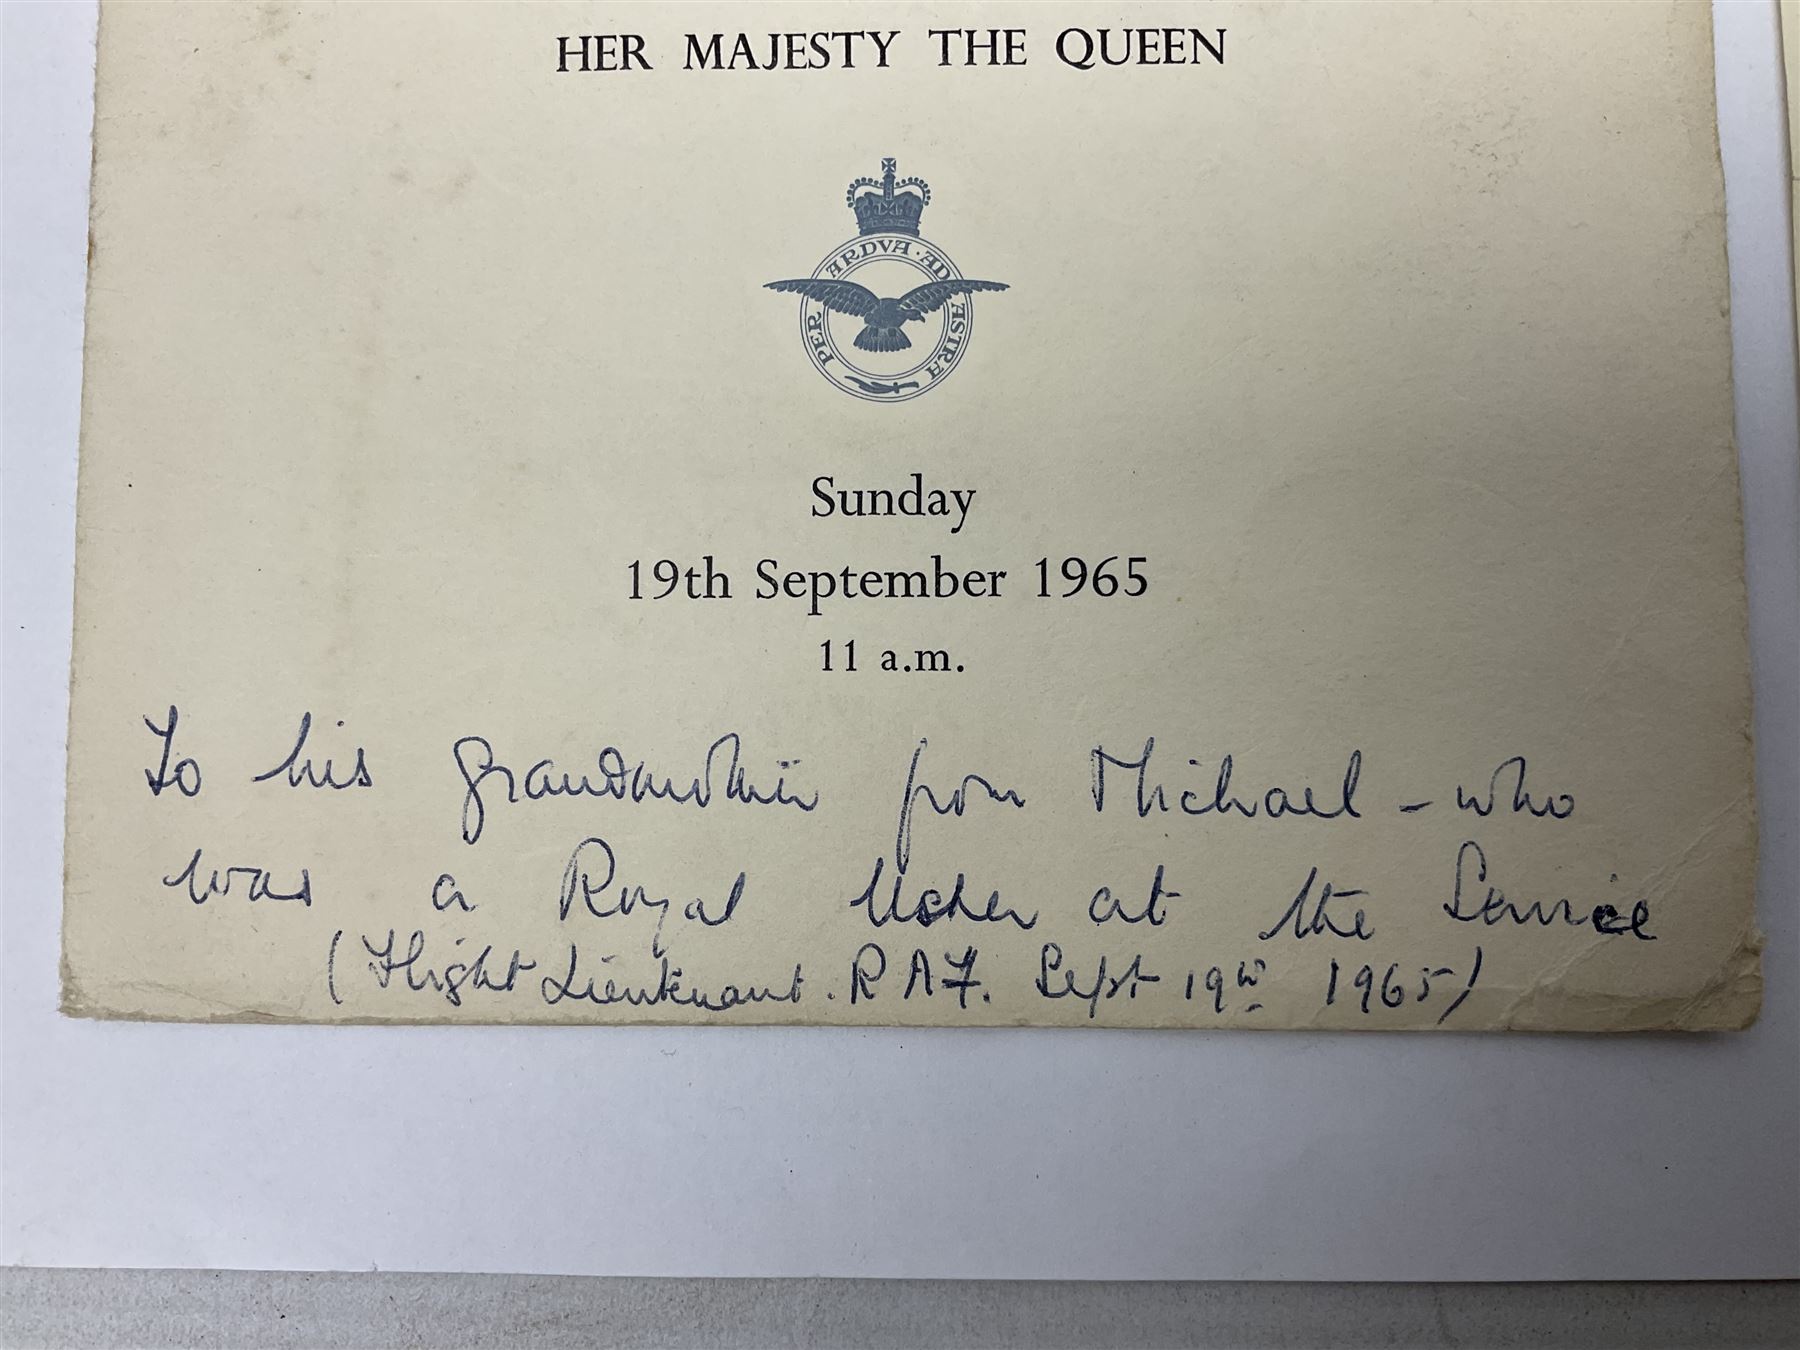 HER MAJESTY THE QUEEN
PER ARDVA · AD ASTRA
Sunday
19th September 1965
11 a.m.
To his grandmother from Michael - who
was a Royal Usher at the Service
(Flight Lieutenant. R A F. Sept 19th 1965)